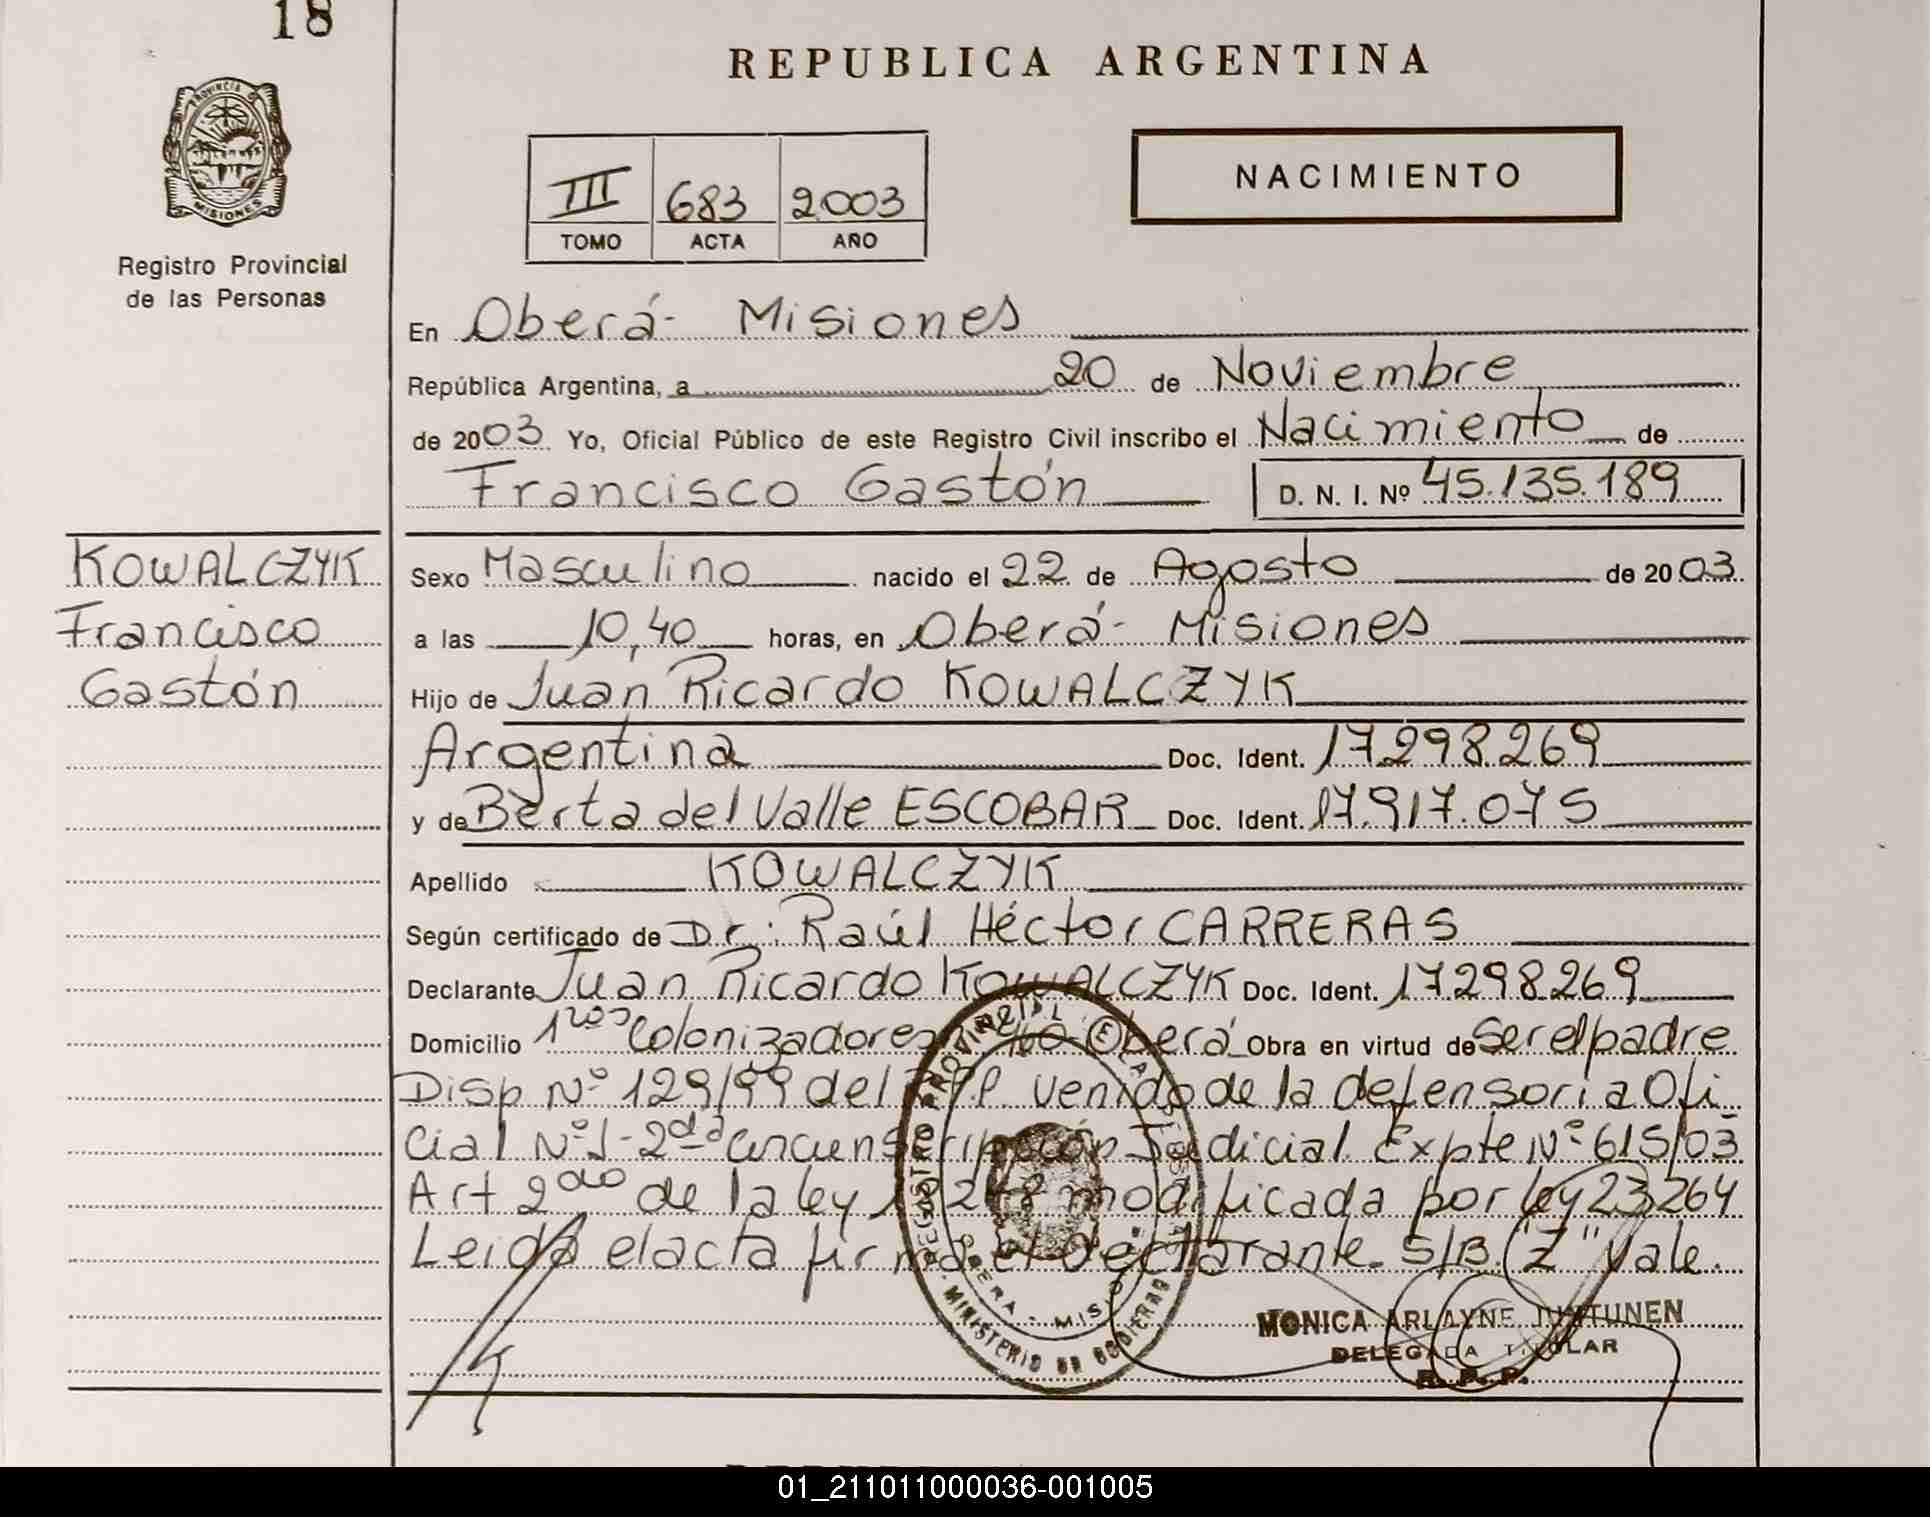 18
REPUBLICA ARGENTINA
PROVINCIA DE
MISIONES
Registro Provincial
de las Personas
III 683 2003
TOMO ACTA AÑO
NACIMIENTO
En Oberá- Misiones
República Argentina, a 20 de Noviembre
de 2003 Yo, Oficial Público de este Registro Civil inscribo el Nacimiento de
Francisco Gastón D. N. I. Nº 45.135.189
KOWALCZYK
Francisco
Gastón
Sexo Masculino nacido el 22 de Agosto de 2003
a las 10,40 horas, en Oberá- Misiones
Hijo de Juan Ricardo KOWALCZYK
Argentina Doc. Ident. 17.298.269
y de Berta del Valle ESCOBAR Doc. Ident. 17.917.075
Apellido KOWALCZYK
Según certificado de Dr: Raúl Héctor CARRERAS
Declarante Juan Ricardo KOWALCZYK Doc. Ident. 17.298.269
Domicilio 1ros Colonizadores Oberá Obra en virtud de Ser el padre
Disp Nº 129/99 del venido de la defensoria Ofi
cial Nº 1- 2da circunscripción Judicial Expte Nº 615/03
Art 2do de la ley modificada por ley 23264
Leida el acta firma el declarante. S/B. "Z" Vale.
REGISTRO PROVINCIAL DE LAS PERSONAS
OBERA - MISIONES
MINISTERIO DE GOBIERNO
MONICA ARLAYNE JUNTUNEN
DELEGADA TITULAR
R. P. P.
01_211011000036-001005